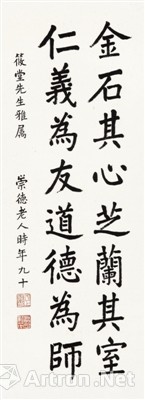 金石其心芝蘭其室
仁義為友道德為師
筱堂先生雅属
崇德老人時年九十